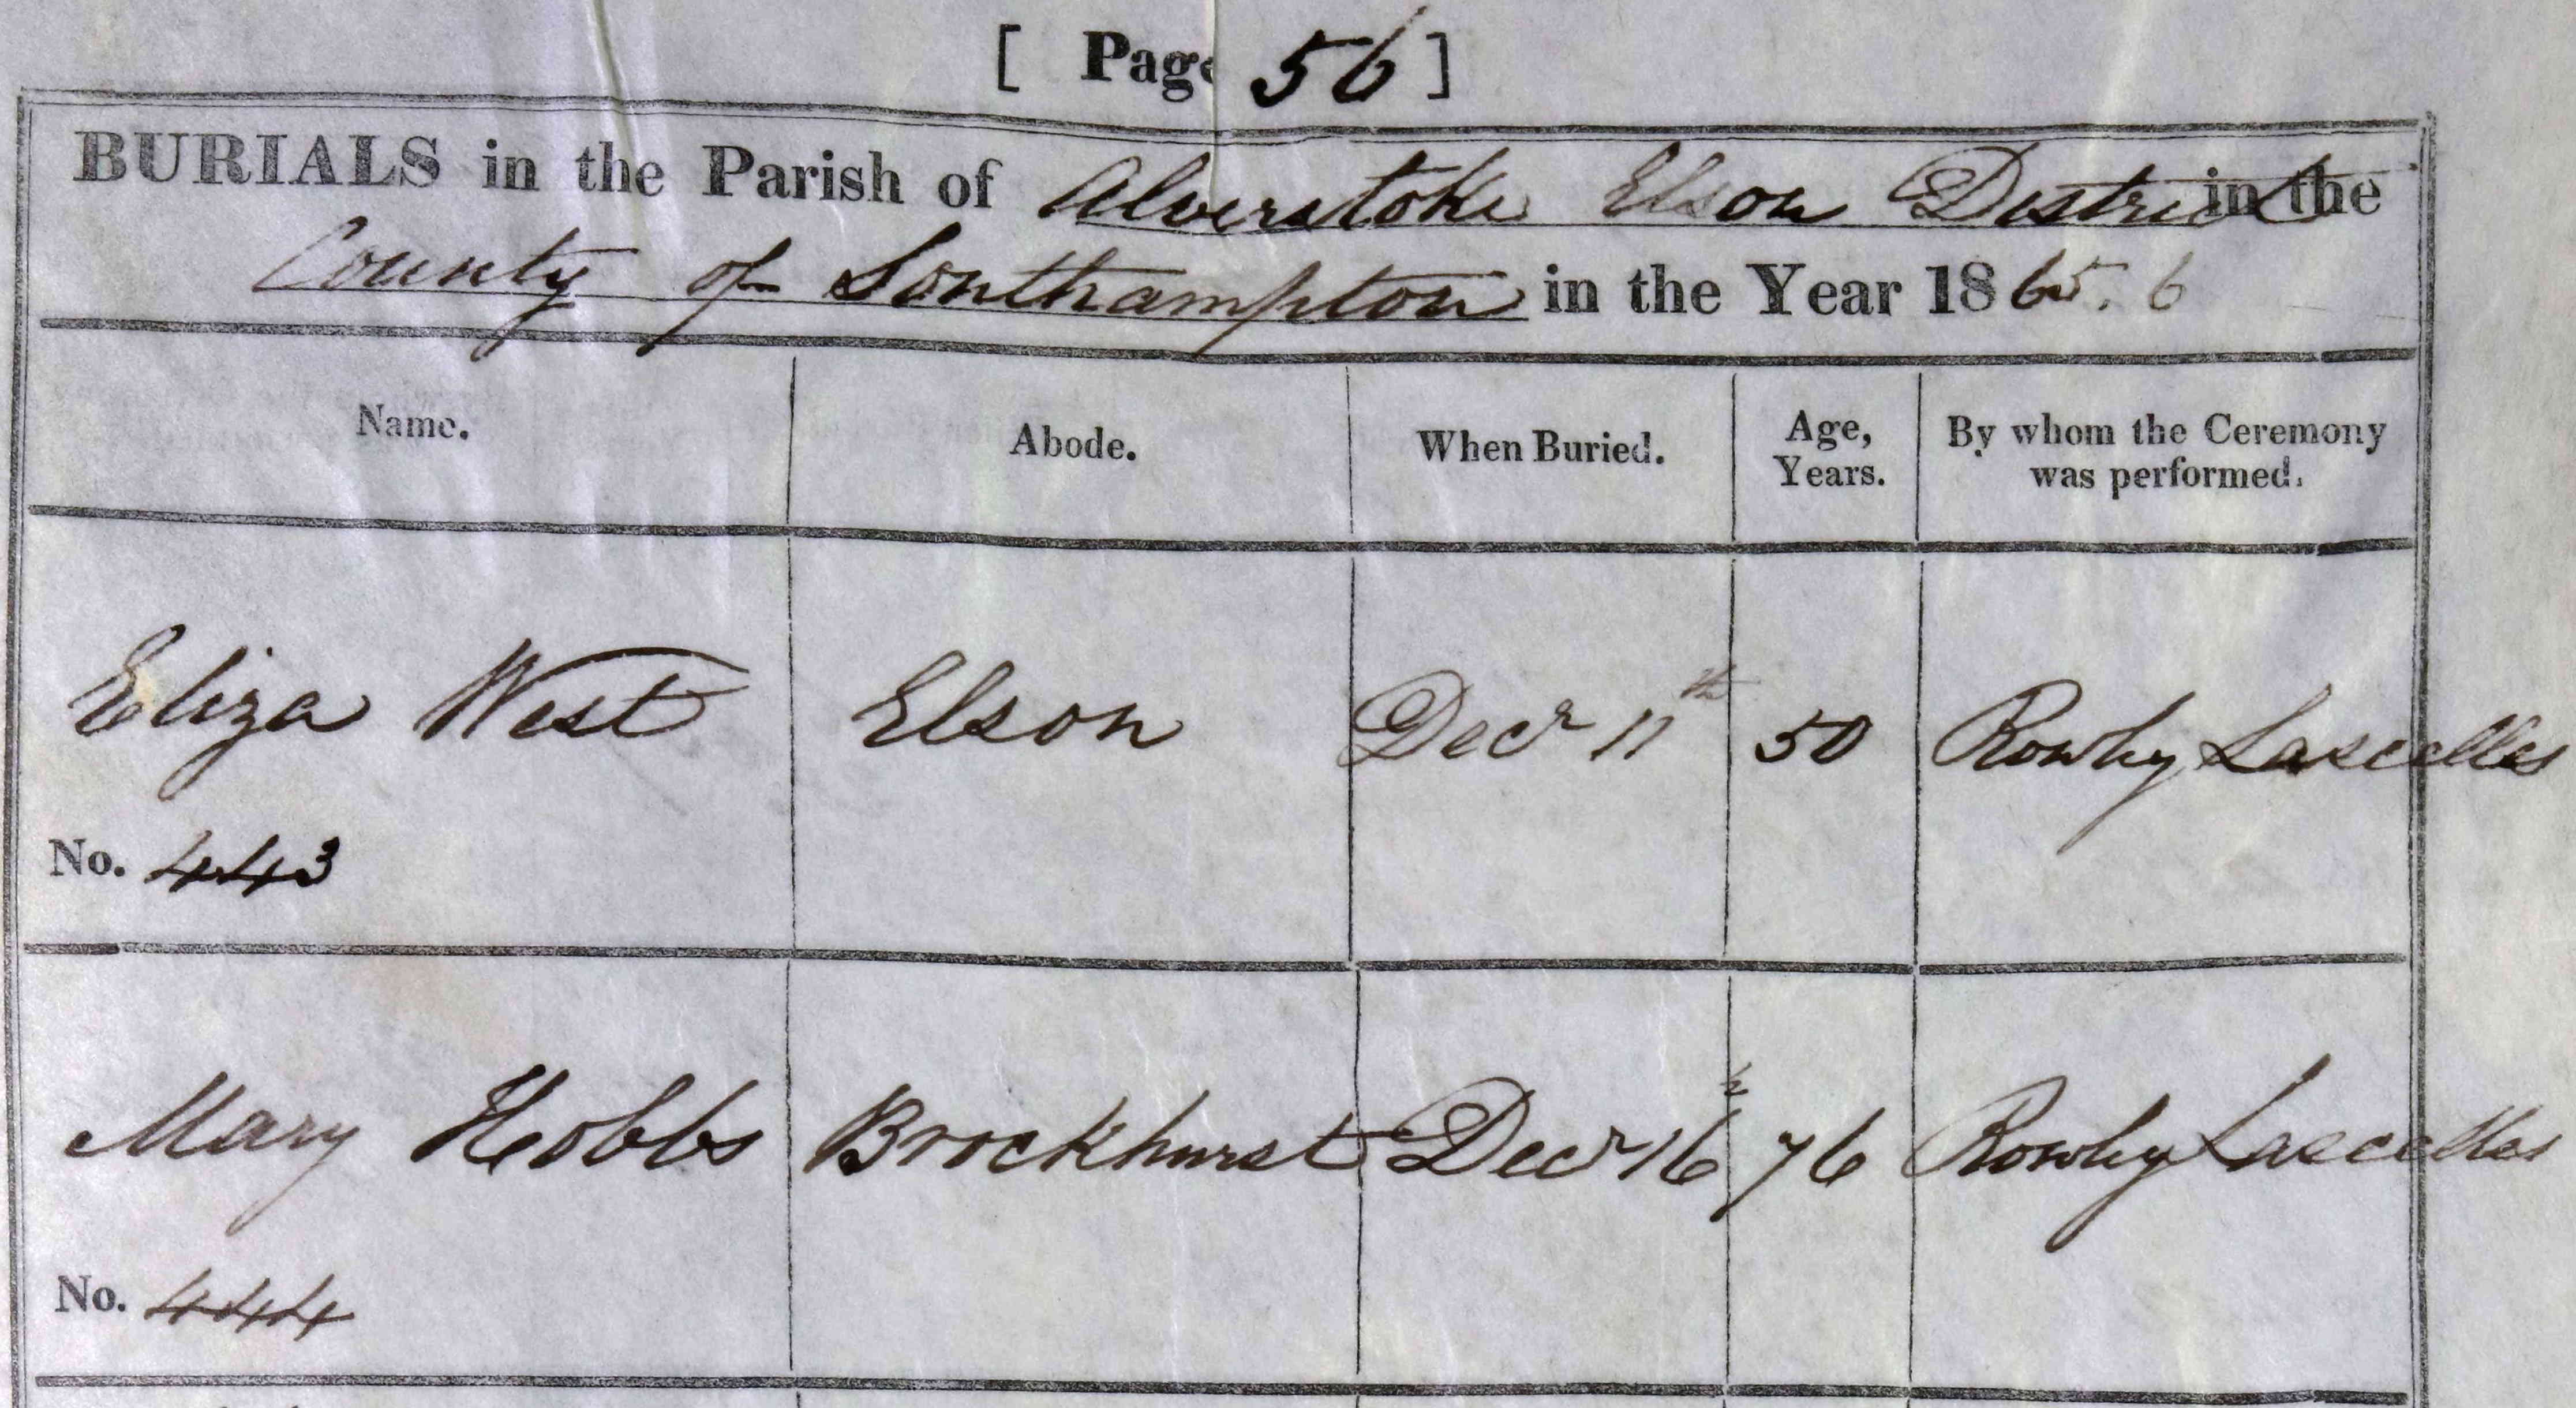 [ Page 56 ]
BURIALS in the Parish of Alverstoke Elson District in the
County of Southampton in the Year 1865.6
Name. Abode. When Buried. Age, Years. By whom the Ceremony was performed.
Eliza West Elson Decr 11th 50 Rowley Lascelles
No. 443
Mary Hobbs Brockhurst Decr 16th 76 Rowley Lascelles
No. 444